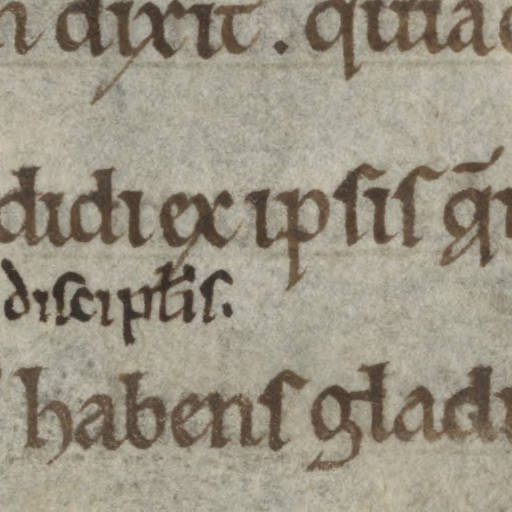 n dixit. quia
didi ex ipsis q̄
discipłis.
habens gladi